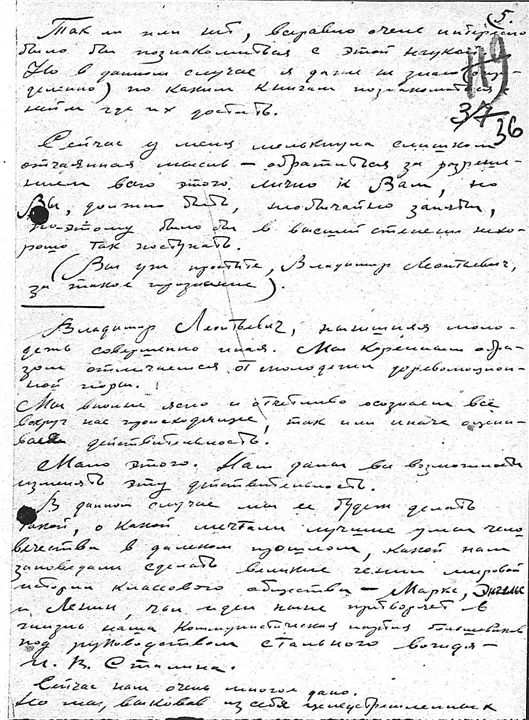 5.
Так или нет, всё равно очень интересно
было бы познакомиться с этой наукой.
Но в данном случае я даже не знаю (опре-
деленно) по каким книгам познакомиться с
ней и где их достать.
119
37
36
Сейчас у меня мелькнула слишком
отчаянная мысль – обратиться за разреше-
нием всего этого лично к Вам, но
Вы, должно быть, необычайно заняты,
поэтому было бы в высшей степени нехо-
рошо так поступать.
(Вы уж простите, Владимир Леонтьевич,
за такое признание).
Владимир Леонтьевич, нынешняя моло-
дежь совершенно иная. Мы коренным обра-
зом отличаемся от молодежи дореволюцион-
ной поры.
Мы вполне ясно и отчетливо осознаем всё
вокруг нас происходящее, так или иначе оцени-
ваем действительность.
Мало этого. Нам даны все возможности
изменять эту действительность.
В данном случае мы ее будем делать
такой, о какой мечтали лучшие умы чело-
вечества в далеком прошлом, какой нам
заповедали сделать великие гении мировой
истории классового общества – Маркс, Энгельс
и Ленин, чьи идеи ныне претворяет в
жизнь наша Коммунистическая партия большевиков
под руководством стального вождя –
И. В. Сталина.
Сейчас нам очень многое дано.
Но мы, выковав из себя целеустремленных